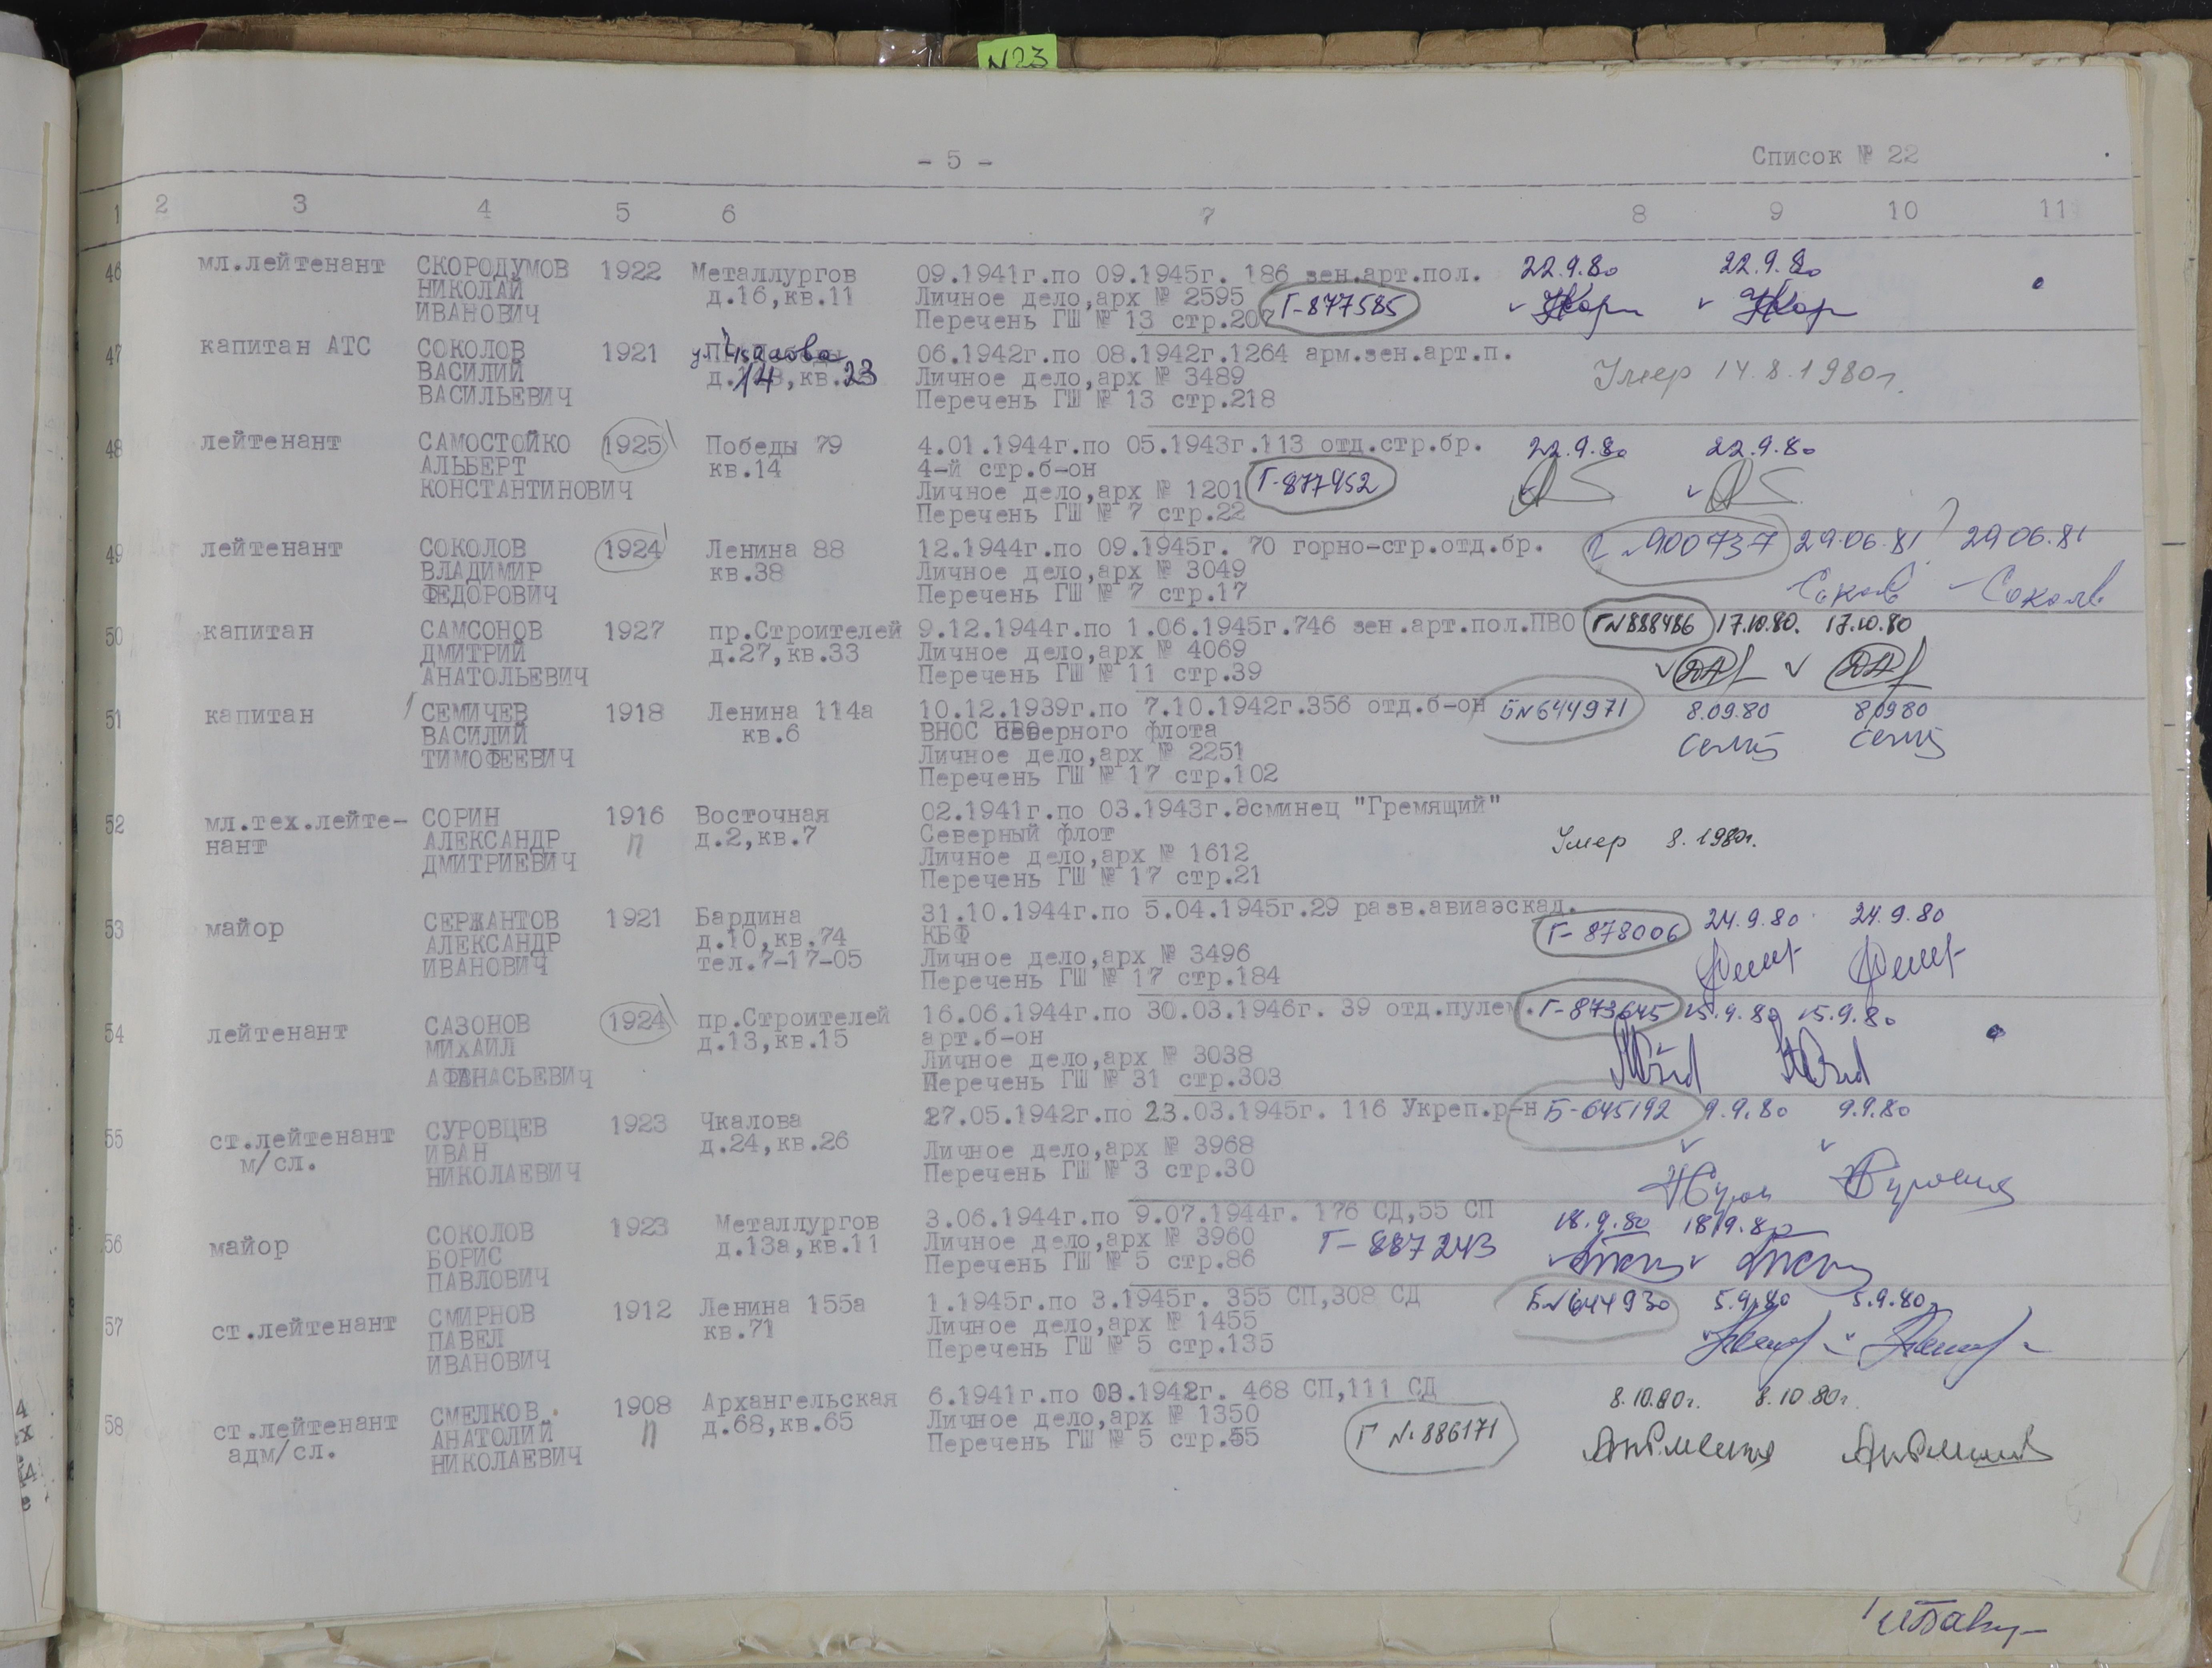 N23
- 5 -
Список № 22
1 2 3 4 5 6 7 8 9 10 11
46 мл.лейтенант СКОРОДУМОВ 1922 Металлургов 09.1941г.по 09.1945г. 186 зен.арт.пол. 22.9.80 22.9.80
НИКОЛАЙ д.16,кв.11 Личное дело,арх № 2595 Г-877585
ИВАНОВИЧ Перечень ГШ № 13 стр.207
47 капитан АТС СОКОЛОВ 1921 ул. Чкалова 06.1942г.по 08.1942г.1264 арм.зен.арт.п.
ВАСИЛИЙ д.14,кв.23 Личное дело,арх № 3489 Умер 14.8.1980г.
ВАСИЛЬЕВИЧ Перечень ГШ № 13 стр.218
48 лейтенант САМОСТОЙКО 1925 Победы 79 4.01.1944г.по 05.1943г.113 отд.стр.бр. 22.9.80 22.9.80
АЛЬБЕРТ кв.14 4-й стр.б-он
КОНСТАНТИНОВИЧ Личное дело,арх № 1201 Г-877952
Перечень ГШ № 7 стр.22
49 лейтенант СОКОЛОВ 1924 Ленина 88 12.1944г.по 09.1945г. 70 горно-стр.отд.бр. Г №900737 29.06.81 29.06.81
ВЛАДИМИР кв.38 Личное дело,арх № 3049
ФЕДОРОВИЧ Перечень ГШ № 7 стр.17
50 капитан САМСОНОВ 1927 пр.Строителей 9.12.1944г.по 1.06.1945г.746 зен.арт.пол.ПВО Г№888486 17.10.80. 17.10.80
ДМИТРИЙ д.27,кв.33 Личное дело,арх № 4069
АНАТОЛЬЕВИЧ Перечень ГШ № 11 стр.39
51 капитан СЕМИЧЕВ 1918 Ленина 114а 10.12.1939г.по 7.10.1942г.356 отд.б-он Б№644971 8.09.80 8.09.80
ВАСИЛИЙ кв.6 ВНОС Северного флота
ТИМОФЕЕВИЧ Личное дело,арх № 2251
Перечень ГШ № 17 стр.102
52 мл.тех.лейте- СОРИН 1916 Восточная 02.1941г.по 03.1943г.Эсминец "Гремящий"
нант АЛЕКСАНДР п д.2,кв.7 Северный флот Умер 8.1980г.
ДМИТРИЕВИЧ Личное дело,арх № 1612
Перечень ГШ № 17 стр.21
53 майор СЕРЖАНТОВ 1921 Бардина 31.10.1944г.по 5.04.1945г.29 разв.авиаэскад. 24.9.80 24.9.80
АЛЕКСАНДР д.10,кв.74 КБФ Г-878006
ИВАНОВИЧ тел.7-17-05 Личное дело,арх № 3496
Перечень ГШ № 17 стр.184
54 лейтенант САЗОНОВ 1924 пр.Строителей 16.06.1944г.по 30.03.1946г. 39 отд.пулем. Г-873645 15.9.80 15.9.80
МИХАИЛ д.13,кв.15 арт.б-он
АФАНАСЬЕВИЧ Личное дело,арх № 3038
Перечень ГШ № 31 стр.303
55 ст.лейтенант СУРОВЦЕВ 1923 Чкалова 27.05.1942г.по 23.03.1945г. 116 Укреп.р-н Б-645192 9.9.80 9.9.80
м/сл. ИВАН д.24,кв.26 Личное дело,арх № 3968
НИКОЛАЕВИЧ Перечень ГШ № 3 стр.30
56 майор СОКОЛОВ 1923 Металлургов 3.06.1944г.по 9.07.1944г. 176 СД,55 СП 18.9.80 18.9.80
БОРИС д.13а,кв.11 Личное дело,арх № 3960 Г-887243
ПАВЛОВИЧ Перечень ГШ № 5 стр.86
57 ст.лейтенант СМИРНОВ 1912 Ленина 155а 1.1945г.по 3.1945г. 355 СП,308 СД Б№644930 5.9.80 5.9.80
ПАВЕЛ кв.71 Личное дело,арх № 1455
ИВАНОВИЧ Перечень ГШ № 5 стр.135
58 ст.лейтенант СМЕЛКОВ 1908 Архангельская 6.1941г.по 03.1942г. 468 СП,111 СД 8.10.80г. 8.10.80г.
адм/сл. АНАТОЛИЙ п д.68,кв.65 Личное дело,арх № 1350 Г №886171
НИКОЛАЕВИЧ Перечень ГШ № 5 стр.55